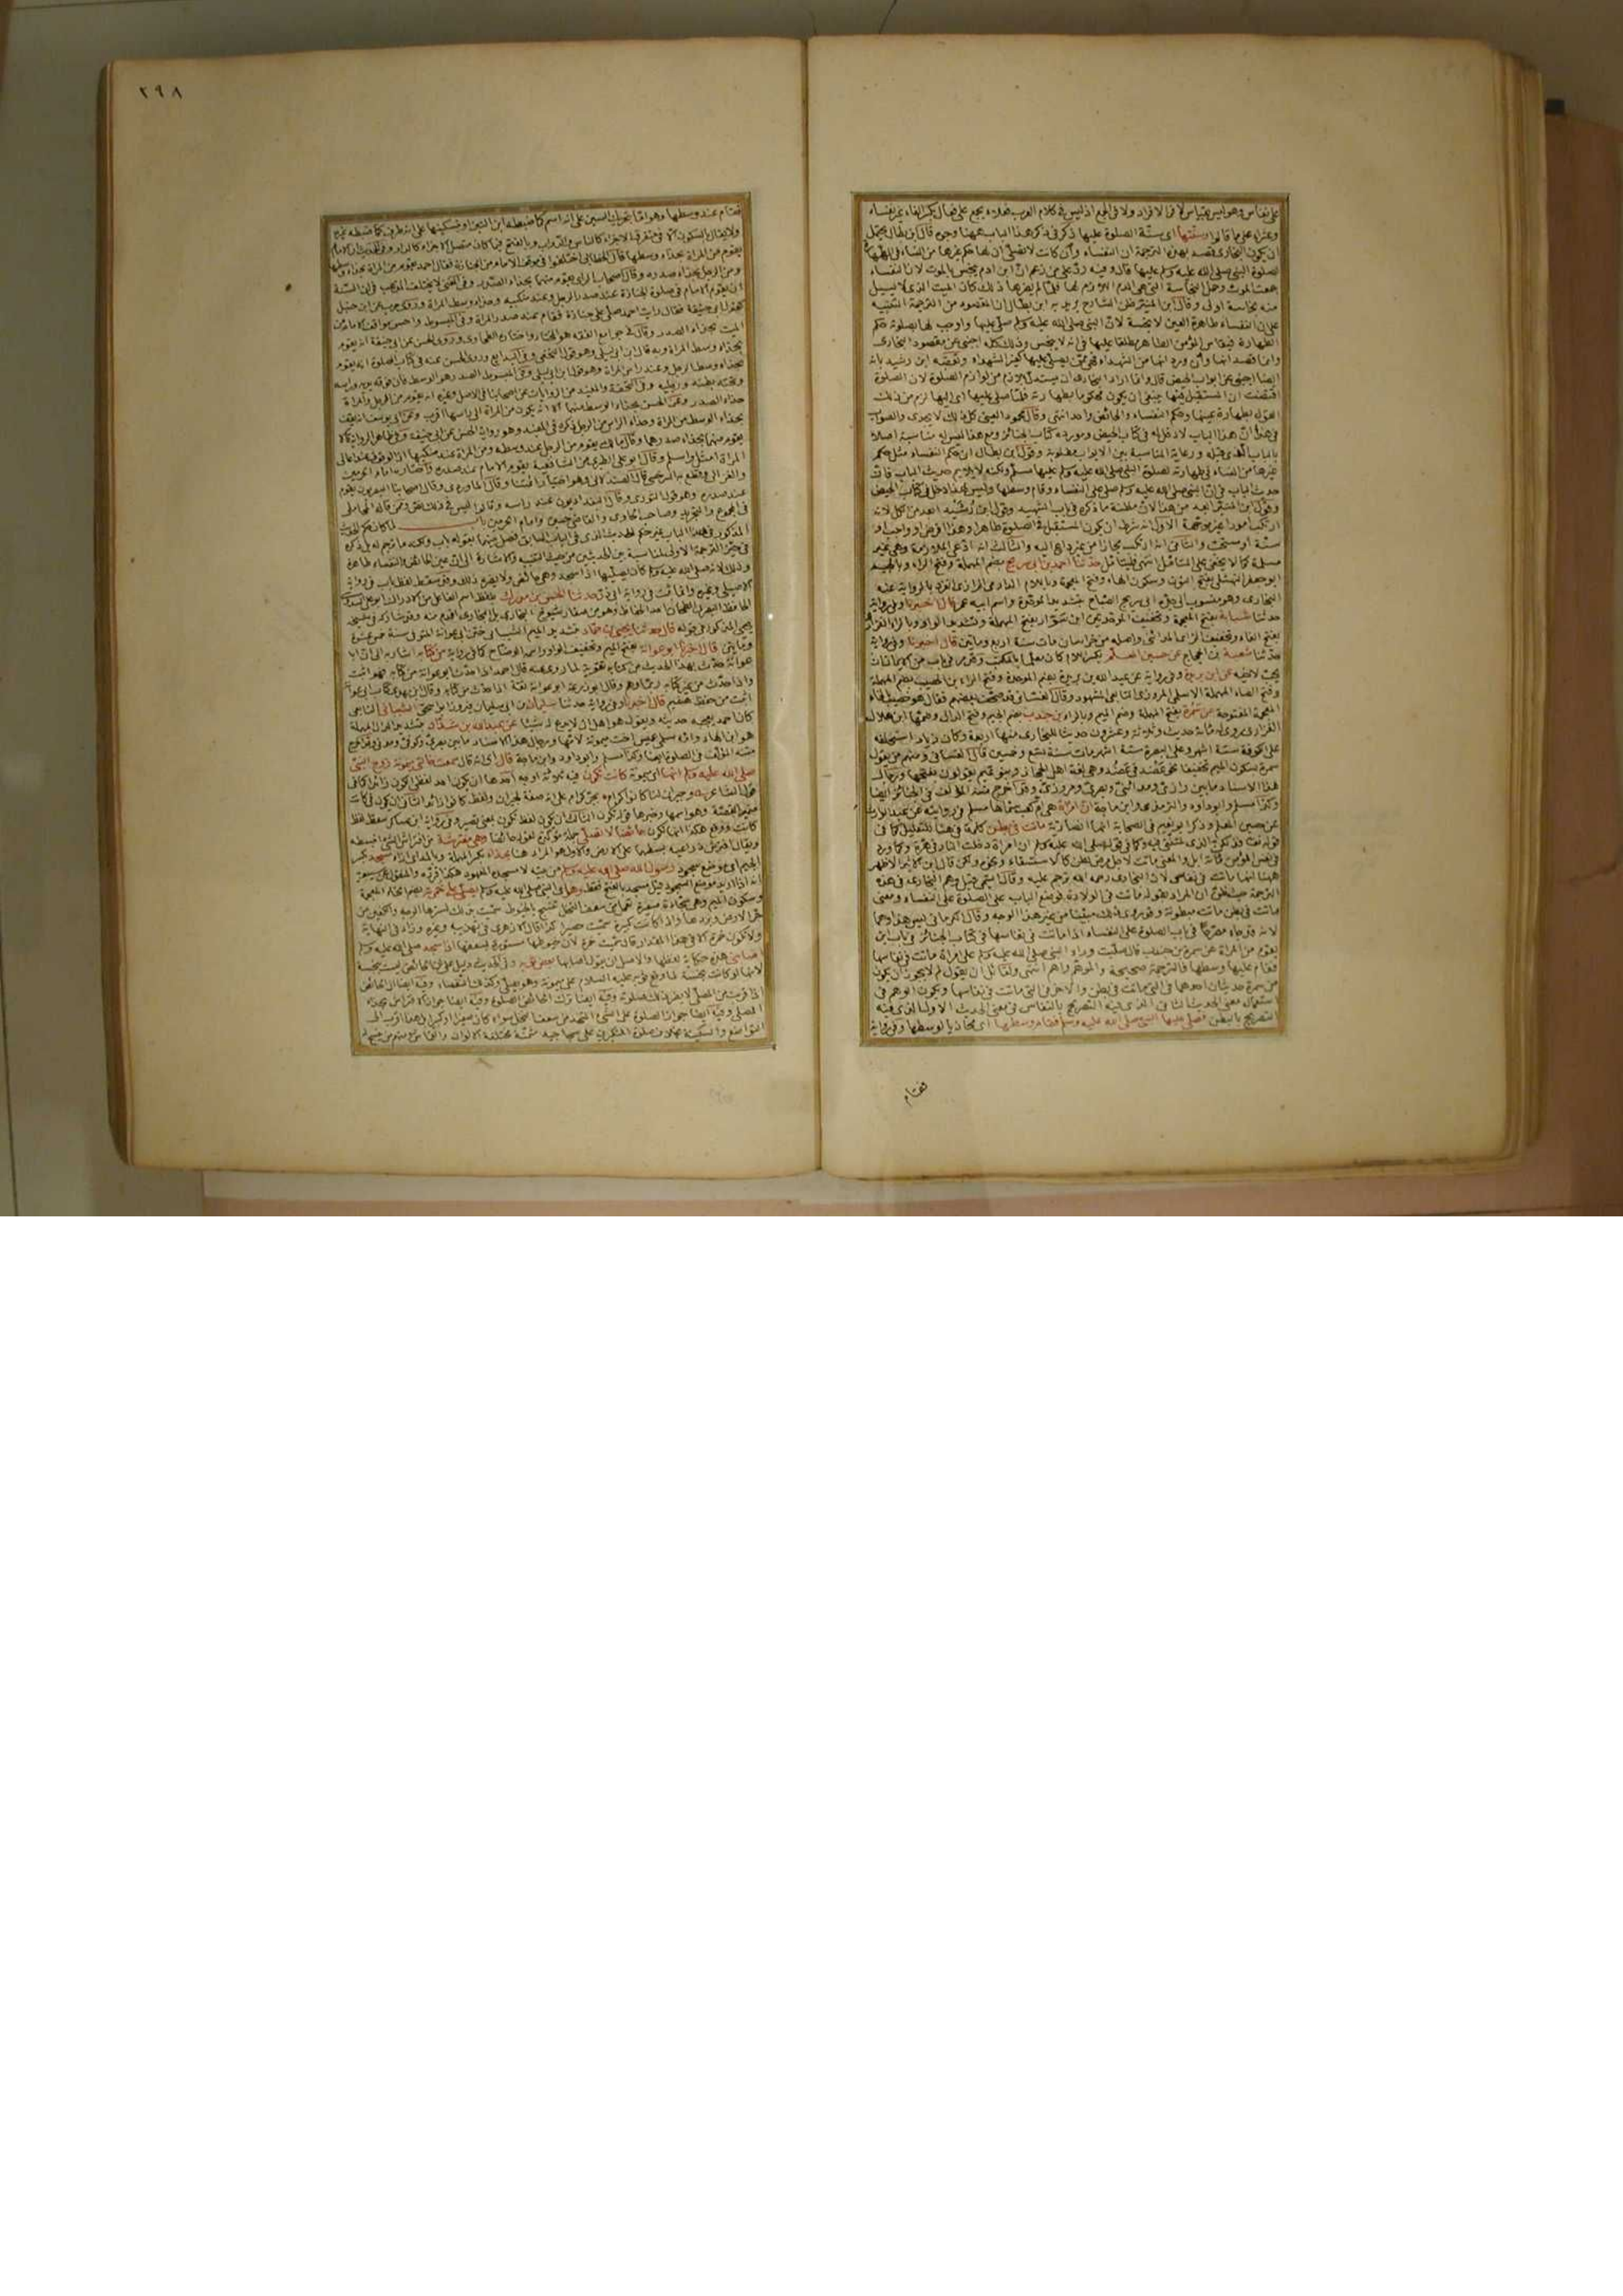 على نفاس وهو ليس بقياس لا في الافراد ولا في الجمع اذ ليس في كلام العرب فعلاء يجمع على فعال بكسر الفاء غير نفساء
وعشراء على ما قالوا وسنتها اى سنة الصلوة عليها ذكر في ذكر هذا الباب ههنا وجوه قال ابن بطال يحتمل
ان يكون البخارى قصد بهذه الترجمة ان النفساء وان كانت لا تصلى ان لها حكم غيرها من النساء في طهارة
لصلوة النبى صلى الله عليه وسلم عليها قال وفيه رد على من زعم ان ابن ادم ينجس بالموت لان النفساء
جمعت الموت وحمل النجاسة التى هى الدم اللازم لها فلما لم يضرها ذلك كان الميت الذى لا يسيل
منه نجاسة اولى وقال ابن المنير ظن الشارح يريد به ابن بطال ان المقصود من الترجمة التنبيه
على ان النفساء طاهرة العين لا نجسة لان النبى صلى الله عليه وسلم صلى عليها واوجب لها بصلوته حكم
الطهارة فيقاس المؤمن الطاهر مطلقا عليها في انه لا ينجس وذلك كله اجنبى عن مقصود البخارى
وانما قصد انها وان ورد انها من الشهداء فهى ممن يصلى عليها كغير الشهداء وتعقبه ابن رشيد بانه
ايضا اجنبى عن ابواب الحيض قال وانما اراد البخارى ان يستدل بلازم من لوازم الصلوة لان الصلوة
اقتضت ان المستقبل فيها ينبغى ان يكون محكوما بطهارته فلما صلى عليها اى اليها لزم من ذلك
القول بطهارة عينها وحكم النفساء والحائض واحد انتهى وقال محمود العينى كل ذلك لا يجدى والصواب
في هذا ان هذا الباب لا دخل له في كتاب الحيض ومورده كتاب الجنائز ومع هذا ليس له مناسبة اصلا
بالباب الذى قبله ورعاية المناسبة بين الابواب مطلوبة وقول ابن بطال ان حكم النفساء مثل حكم
غيرها من النساء في طهارته لصلوة النبى صلى الله عليه وسلم عليها مسلم ولكنه لا يلايم حديث الباب فان
حديث الباب في ان النبى صلى الله عليه وسلم صلى على النفساء وقام وسطها وليس لهذا دخل في كتاب الحيض
وقول ابن المنير ابعد من هذا لان مظنة ما ذكره في باب الشهيد وقول ابن رشيد ابعد من الكل لانه
ارتكب امورا غير موجهة الاول انه شرط ان يكون المستقبل في الصلوة طاهرا وهذا فرض او واجب او
سنة او مستحب والثانى انه ارتكب مجازا من غير داع اليه والثالث انه ادعى الملازمة وهى غير
مسلمة كما لا يخفى على المتأمل انتهى فليتأمل حدثنا احمد بن ابى سريج بضم المهملة وفتح الراء وبالجيم
ابو جعفر النهشلى بفتح النون وسكون الهاء وفتح المعجمة وباللام الدارمى الرازى انفرد بالرواية عنه
البخارى وهو منسوب الى جده ابى سريج الصباح بتشديد الموحدة واسم ابيه عمر قال اخبرنا وفي رواية
حدثنا شبابة بفتح المعجمة وتخفيف الموحدتين ابن سوار بفتح المهملة وتشديد الواو وبالراء الفزارى
بفتح الفاء وتخفيف الزاى المدائنى واصله من خراسان مات سنة اربع ومايتين قال اخبرنا وفي رواية
حدثنا شعبة بن الحجاج عن حسين المعلم بكسر اللام
عن ابن بريدة وفي رواية عن عبد الله بن بريدة بضم الموحدة وفتح الراء بن الحصيب بضم المهملة
وفتح الصاد المهملة الاسلمى المروزى التابعى المشهور وقال الغسانى قد صحف بعضهم فقال هو خصيب بالخاء
المعجمة المفتوحة عن سمرة بفتح المهملة وضم الميم وبالراء بن جندب بضم الجيم وفتح الدال وضمها ابن هلال
الفزارى روى له مائة حديث وثلاثة وعشرون حديثا للبخارى منها اربعة وكان زياد استخلفه
على الكوفة ستة اشهر وعلى البصرة ستة اشهر مات سنة تسع وخمسين قال الغسانى ومنهم من يقول
سمرة بسكون الميم تخفيفا نحو عضد في عضد وهى لغة اهل الحجاز وبنو تميم يقولون بضمها ورجال
هذا الاسناد ما بين رازى ومدائنى وبصرى ومروزى وقد اخرج متنه المؤلف في الجنائز ايضا
وكذا مسلم وابو داود والترمذى وابن ماجة ان امراة هى ام كعب سماها مسلم في روايته عن عبد الوارث
عن حسين المعلم وذكر ابو نعيم في الصحابة انها انصارية ماتت في بطن كلمة في هنا للتعليل كما في
قوله تعالى فذلكن الذى لمتننى فيه وكما في قوله صلى الله عليه وسلم ان امراة دخلت النار في هرة وكما ورد
في النفس المؤمن مائة ابل والمعنى ماتت لاجل مرض بطن كالاستسقاء ونحوه ولكن قال ابن الاثير الاظهر
ههنا انها ماتت في نفاس لان البخارى رحمه الله ترجم عليه وقال التيمى قيل وهم البخارى في هذه
الترجمة حيث ظن ان المراد بقوله ماتت في الولادة فوضع الباب على الصلوة على النفساء ومعنى
ماتت في بطن ماتت مبطونة وقد روى ذلك مبينا من غير هذا الوجه وقال الكرمانى ليس هذا وهما
لانه قد جاء مصرحا في باب الصلوة على النفساء اذا ماتت في نفاسها في كتاب الجنائز في باب اين
يقوم من المراة عن سمرة بن جندب قال صليت وراء النبى صلى الله عليه وسلم على امراة ماتت في نفاسها
فقام عليها وسطها فالترجمة صحيحة والموهم واهم انتهى ولقائل ان يقول لم لا يجوز ان يكون
من سمرة حديثان احدهما في التى ماتت في بطن والاخر في التى ماتت في نفاسها ويكون الوهم في
استعمال معنى الحديث الثانى الذى فيه التصريح بالنفاس في معنى الحديث الاول الذى فيه
التصريح بالبطن فصلى عليها النبى صلى الله عليه وسلم فقام وسطها اى محاذيا لوسطها وفي رواية
فقام
٢٩٨
فقام عند وسطها وهو اما بتحريك السين على انه اسم كما ضبطه ابن التين او بتسكينها على انه ظرف كما ضبطه غيره
يقوم من المراة بحذاء وسطها قال الخطابى اختلفوا في موقف الامام من الجنازة فقال احمد يقوم من المراة بحذاء وسطها
ومن الرجل بحذاء صدره وقال اصحاب الراى يقوم منهما بحذاء الصدر
ان يقوم الامام في صلوة الجنازة عند صدر الرجل وعند منكبيه وحذاء وسط المراة وروى حرب عن ابن حنبل
كقول ابى حنيفة فقال رايت احمد صلى على جنازة فقام عند صدر المراة وفي المبسوط واحسن مواقف الامام من
الميت بحذاء الصدر وقال في جوامع الفقه هو المختار واختاره الطحاوى وروى الحسن عن ابى حنيفة انه يقوم
بحذاء وسط المراة وبه قال ابن ابى ليلى وهو قول النخعى وفي البدايع وروى الحسن عنه في كتاب الصلوة انه يقوم
بحذاء وسط الرجل وعند راس المراة وهو قول ابن ابى ليلى وفي المبسوط الصدر هو الوسط فان فوقه يديه وراسه
وتحته بطنه ورجليه وفي التحفة والمفيد من الروايات عن اصحابنا في الاصل وغيره انه يقوم من الرجل والمراة
حذاء الصدر وعن الحسن بحذاء الوسط منهما الا انه يكون من المراة الى راسها اقرب وعن ابى يوسف انه يقف
بحذاء الوسط من المراة وحذاء الراس من الرجل ذكره في المفيد وهو رواية الحسن عن ابى حنيفة
يقوم منهما بحذاء صدرهما وقال مالك يقوم من الرجل عند وسطه ومن المراة عند منكبيها
المراة امثل واسلم وقال ابو على الطبرى من الشافعية يقوم الامام عند صدره واختاره امام الحرمين
والغزالى وقطع به السرخسى قال الصيدلانى وهو اختيار ائمتنا وقال الماوردى وقال اصحابنا البصريون يقوم
عند صدره وهو قول الثورى وقال البغداديون عند راسه وقالوا ليس في ذلك نص وممن قاله المحاملى
في المجموع والتجريد وصاحب الحاوى والقاضى حسين وامام الحرمين باب لما كان حكم الحديث
المذكور في هذا الباب غير حكم الحديث الذى في الباب السابق فصل بينهما بقوله باب
وذلك لانه صلى الله عليه وسلم كان يصليها اذا سجد وهى حائض ولا يضره ذلك وقد سقط لفظ باب في رواية
الاصيلى وغيره وانما ثبت في رواية ابى ذر حدثنا الحسن بن مدرك بلفظ اسم الفاعل من الادراك ابو على السدوسى
الحافظ البصرى الطحان احد الحفاظ وهو من صغار شيوخ البخارى بل البخارى اقدم منه وقد شاركه في شيخه
يحيى المذكور في قوله قال حدثنا يحيى بن حماد بتشديد الميم الشيبانى ختن ابى عوانة المتوفى سنة خمس عشرة
ومايتين قال اخبرنا ابو عوانة بفتح الميم وتخفيف الواو واسمه الوضاح كما في رواية من كتابه اشارة الى ان ابا
عوانة حدث بهذا الحديث من كتابه تقوية لما روى عنه قال احمد اذا حدث ابو عوانة من كتابه فهو اثبت
واذا حدث من غير كتابه ربما وهم وقال ابو زرعة ابو عوانة ثقة اذا حدث من كتابه وقال ابن مهدى كتاب ابى عوانة
اثبت من حفظ هشيم قال اخبرنا وفي رواية حدثنا سليمان بن ابى سليمان فيروز ابو اسحق الشيبانى التابعى
عن عبد الله بن شداد بتشديد الدال المهملة
هو ابن الهاد وامه سلمى بنت عميس اخت ميمونة لامها ورجال هذا الاسناد ما بين بصرى وكوفى ومدنى وقد اخرج
متنه المؤلف في الصلوة ايضا وكذا مسلم وابو داود وابن ماجة قال اى انه قال سمعت خالتى ميمونة زوج النبى
صلى الله عليه وسلم انها اى ميمونة كانت تكون فيه ثلاثة اوجه احدها ان يكون احد لفظى الكون زائدا كما في
قول الشاعر وجيران لنا كانوا كرام بجر كرام على انه صفة لجيران ولفظ كانوا زائد الثانى ان يكون في كانت
ضمير القصة وهو اسمها وخبرها قوله تكون الثالث ان يكون لفظ تكون بمعنى تصير وفي رواية ابن عساكر سقط لفظ
كانت ووقع هكذا انها تكون حائضا لا تصلى جملة مؤكدة لقوله حائضا وهى مفترشة من افترش الشئ انبسطه
ويقال افترش ذراعيه بسطهما على الارض والاول هو المراد هنا بحذاء بكسر المهملة وبالمد اى ازاء مسجد بكسر
الجيم اى موضع سجود رسول الله صلى الله عليه وسلم من بيته لا مسجده المعهود هكذا قرره والمنقول عن سيبويه
انه اذا اريد موضع السجود قيل مسجد بالفتح فقط وهو اى النبى صلى الله عليه وسلم يصلى على خمرته بضم الخاء المعجمة
وسكون الميم وهى سجادة صغيرة تعمل من سعف النخل تنسج بالخيوط سميت بذلك لسترها الوجه والكفين من
حر الارض وبردها واذا كانت كبيرة سميت حصيرا كذا قال الازهرى في تهذيبه وغيره وزاد في النهاية
ولا تكون خمرة الا في هذا المقدار قال سميت خمرة لان خيوطها مستورة بسعفها اذا سجد صلى الله عليه وسلم
اصابنى هذه حكاية لفظها والاصل ان يقول اصابها بعض ثوبه وفي الحديث دليل على ان الحائض ليست بنجسة
لانها لو كانت نجسة لما وقع ثوبه عليه السلام على ميمونة وهو يصلى وكذلك النفساء وفيه ايضا ان الحائض
اذا قربت من المصلى لا يضر ذلك صلوته وفيه ايضا ترك الحائض الصلوة وفيه ايضا جواز الافتراش بحذاء
المصلى وفيه ايضا جواز الصلوة على الشئ المتخذ من سعف النخل سواء كان صغيرا او كبيرا بل هذا اقرب الى
التواضع والمسكنة بخلاف صلوة المتكبرين على سجاجيد مثمنة مختلفة الالوان والقماش ومنهم من ينسج له